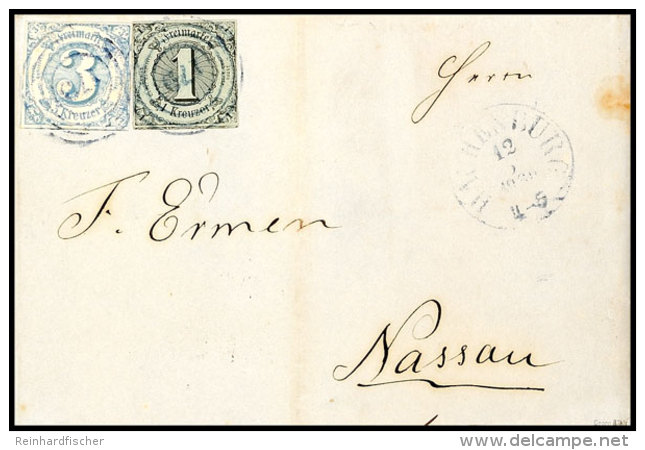 Freimarke
3
Kreuzer
Freimarke
1
Kreuzer
Herrn
12
F. Ermen
Nassau
Reinhardfischer
delcampe.net